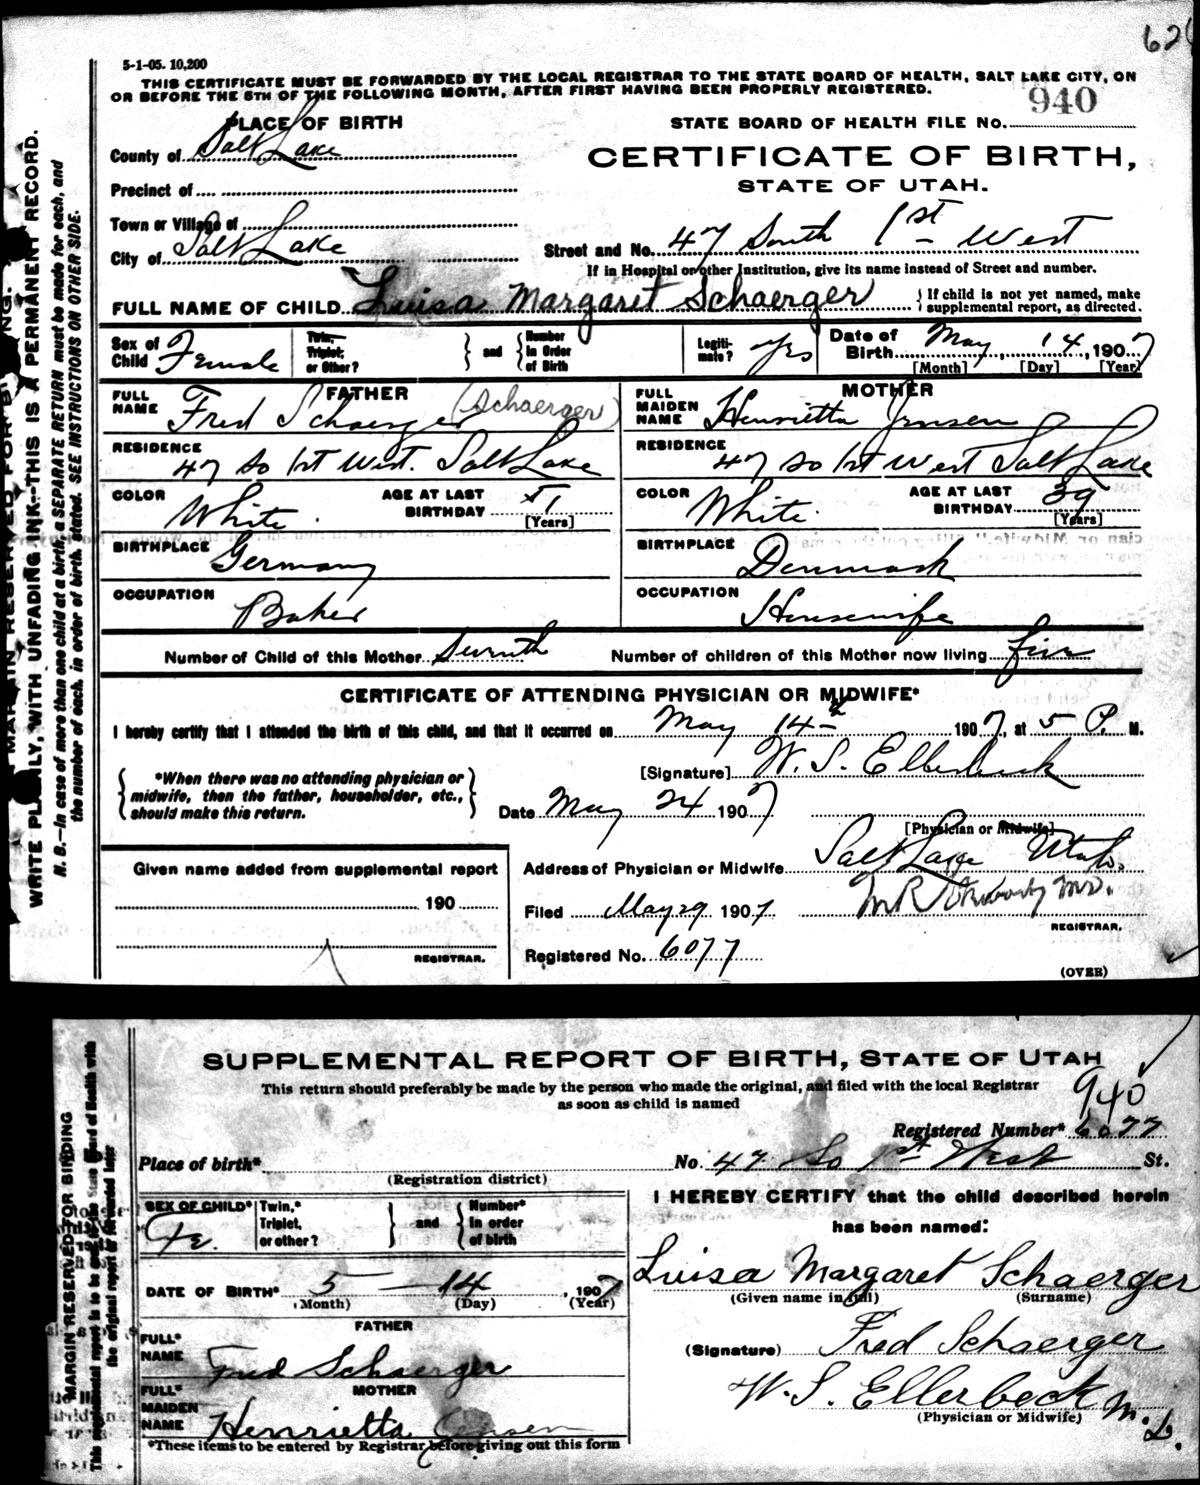 62
5-1-05. 10,200
THIS CERTIFICATE MUST BE FORWARDED BY THE LOCAL REGISTRAR TO THE STATE BOARD OF HEALTH, SALT LAKE CITY, ON
OR BEFORE THE 5TH OF THE FOLLOWING MONTH, AFTER FIRST HAVING BEEN PROPERLY REGISTERED.
PLACE OF BIRTH
STATE BOARD OF HEALTH FILE No. 940
County of Salt Lake
CERTIFICATE OF BIRTH,
STATE OF UTAH.
Precinct of
Town or Village of
City of Salt Lake
Street and No. 47 South 1st West
If in Hospital or other Institution, give its name instead of Street and number.
FULL NAME OF CHILD Luisa Margaret Schaerger
If child is not yet named, make
supplemental report, as directed.
Sex of Child Female
Twin, Triplet, or Other?
and
Number in Order of Birth
Legitimate? Yes
Date of Birth May 14, 1907
[Month] [Day] [Year]
FATHER
FULL NAME Fred Schaerger (Schaerger)
RESIDENCE 47 So 1st West. Salt Lake
COLOR White.
AGE AT LAST BIRTHDAY 51
[Years]
BIRTHPLACE Germany
OCCUPATION Baker
MOTHER
FULL MAIDEN NAME Henrietta Jensen
RESIDENCE 47 So 1st West Salt Lake
COLOR White.
AGE AT LAST BIRTHDAY 39
[Years]
BIRTHPLACE Denmark
OCCUPATION Housewife
Number of Child of this Mother Seventh
Number of children of this Mother now living five
CERTIFICATE OF ATTENDING PHYSICIAN OR MIDWIFE*
I hereby certify that I attended the birth of this child, and that it occurred on May 14th 1907, at 5 P. M.
*When there was no attending physician or
midwife, then the father, householder, etc.,
should make this return.
[Signature] W. S. Ellerbeck
Date May 24 1907
[Physician or Midwife]
Given name added from supplemental report
190
REGISTRAR.
Address of Physician or Midwife Salt Lake Utah.
Filed May 29 1907
M.D.
REGISTRAR.
Registered No. 6077
(OVER)
MARGIN RESERVED FOR BINDING.
WRITE PLAINLY, WITH UNFADING INK--THIS IS A PERMANENT RECORD.
N. B.—In case of more than one child at a birth, a SEPARATE RETURN must be made for each, and
the number of each, in order of birth, stated. SEE INSTRUCTIONS ON OTHER SIDE.
SUPPLEMENTAL REPORT OF BIRTH, STATE OF UTAH
This return should preferably be made by the person who made the original, and filed with the local Registrar
as soon as child is named
940
Registered Number* 6077
Place of birth*
No. 47 So 1st West St.
(Registration district)
SEX OF CHILD* Fe.
Twin,* Triplet, or other?
and
Number* In order of birth
DATE OF BIRTH* 5 — 14, 1907
(Month) (Day) (Year)
FATHER
FULL* NAME Fred Schaerger
MOTHER
FULL* MAIDEN NAME Henrietta Jensen
*These items to be entered by Registrar before giving out this form
I HEREBY CERTIFY that the child described herein
has been named:
Luisa Margaret Schaerger
(Given name in full) (Surname)
(Signature) Fred Schaerger
W. S. Ellerbeck M.D.
(Physician or Midwife)
MARGIN RESERVED FOR BINDING
the original report if forwarded later